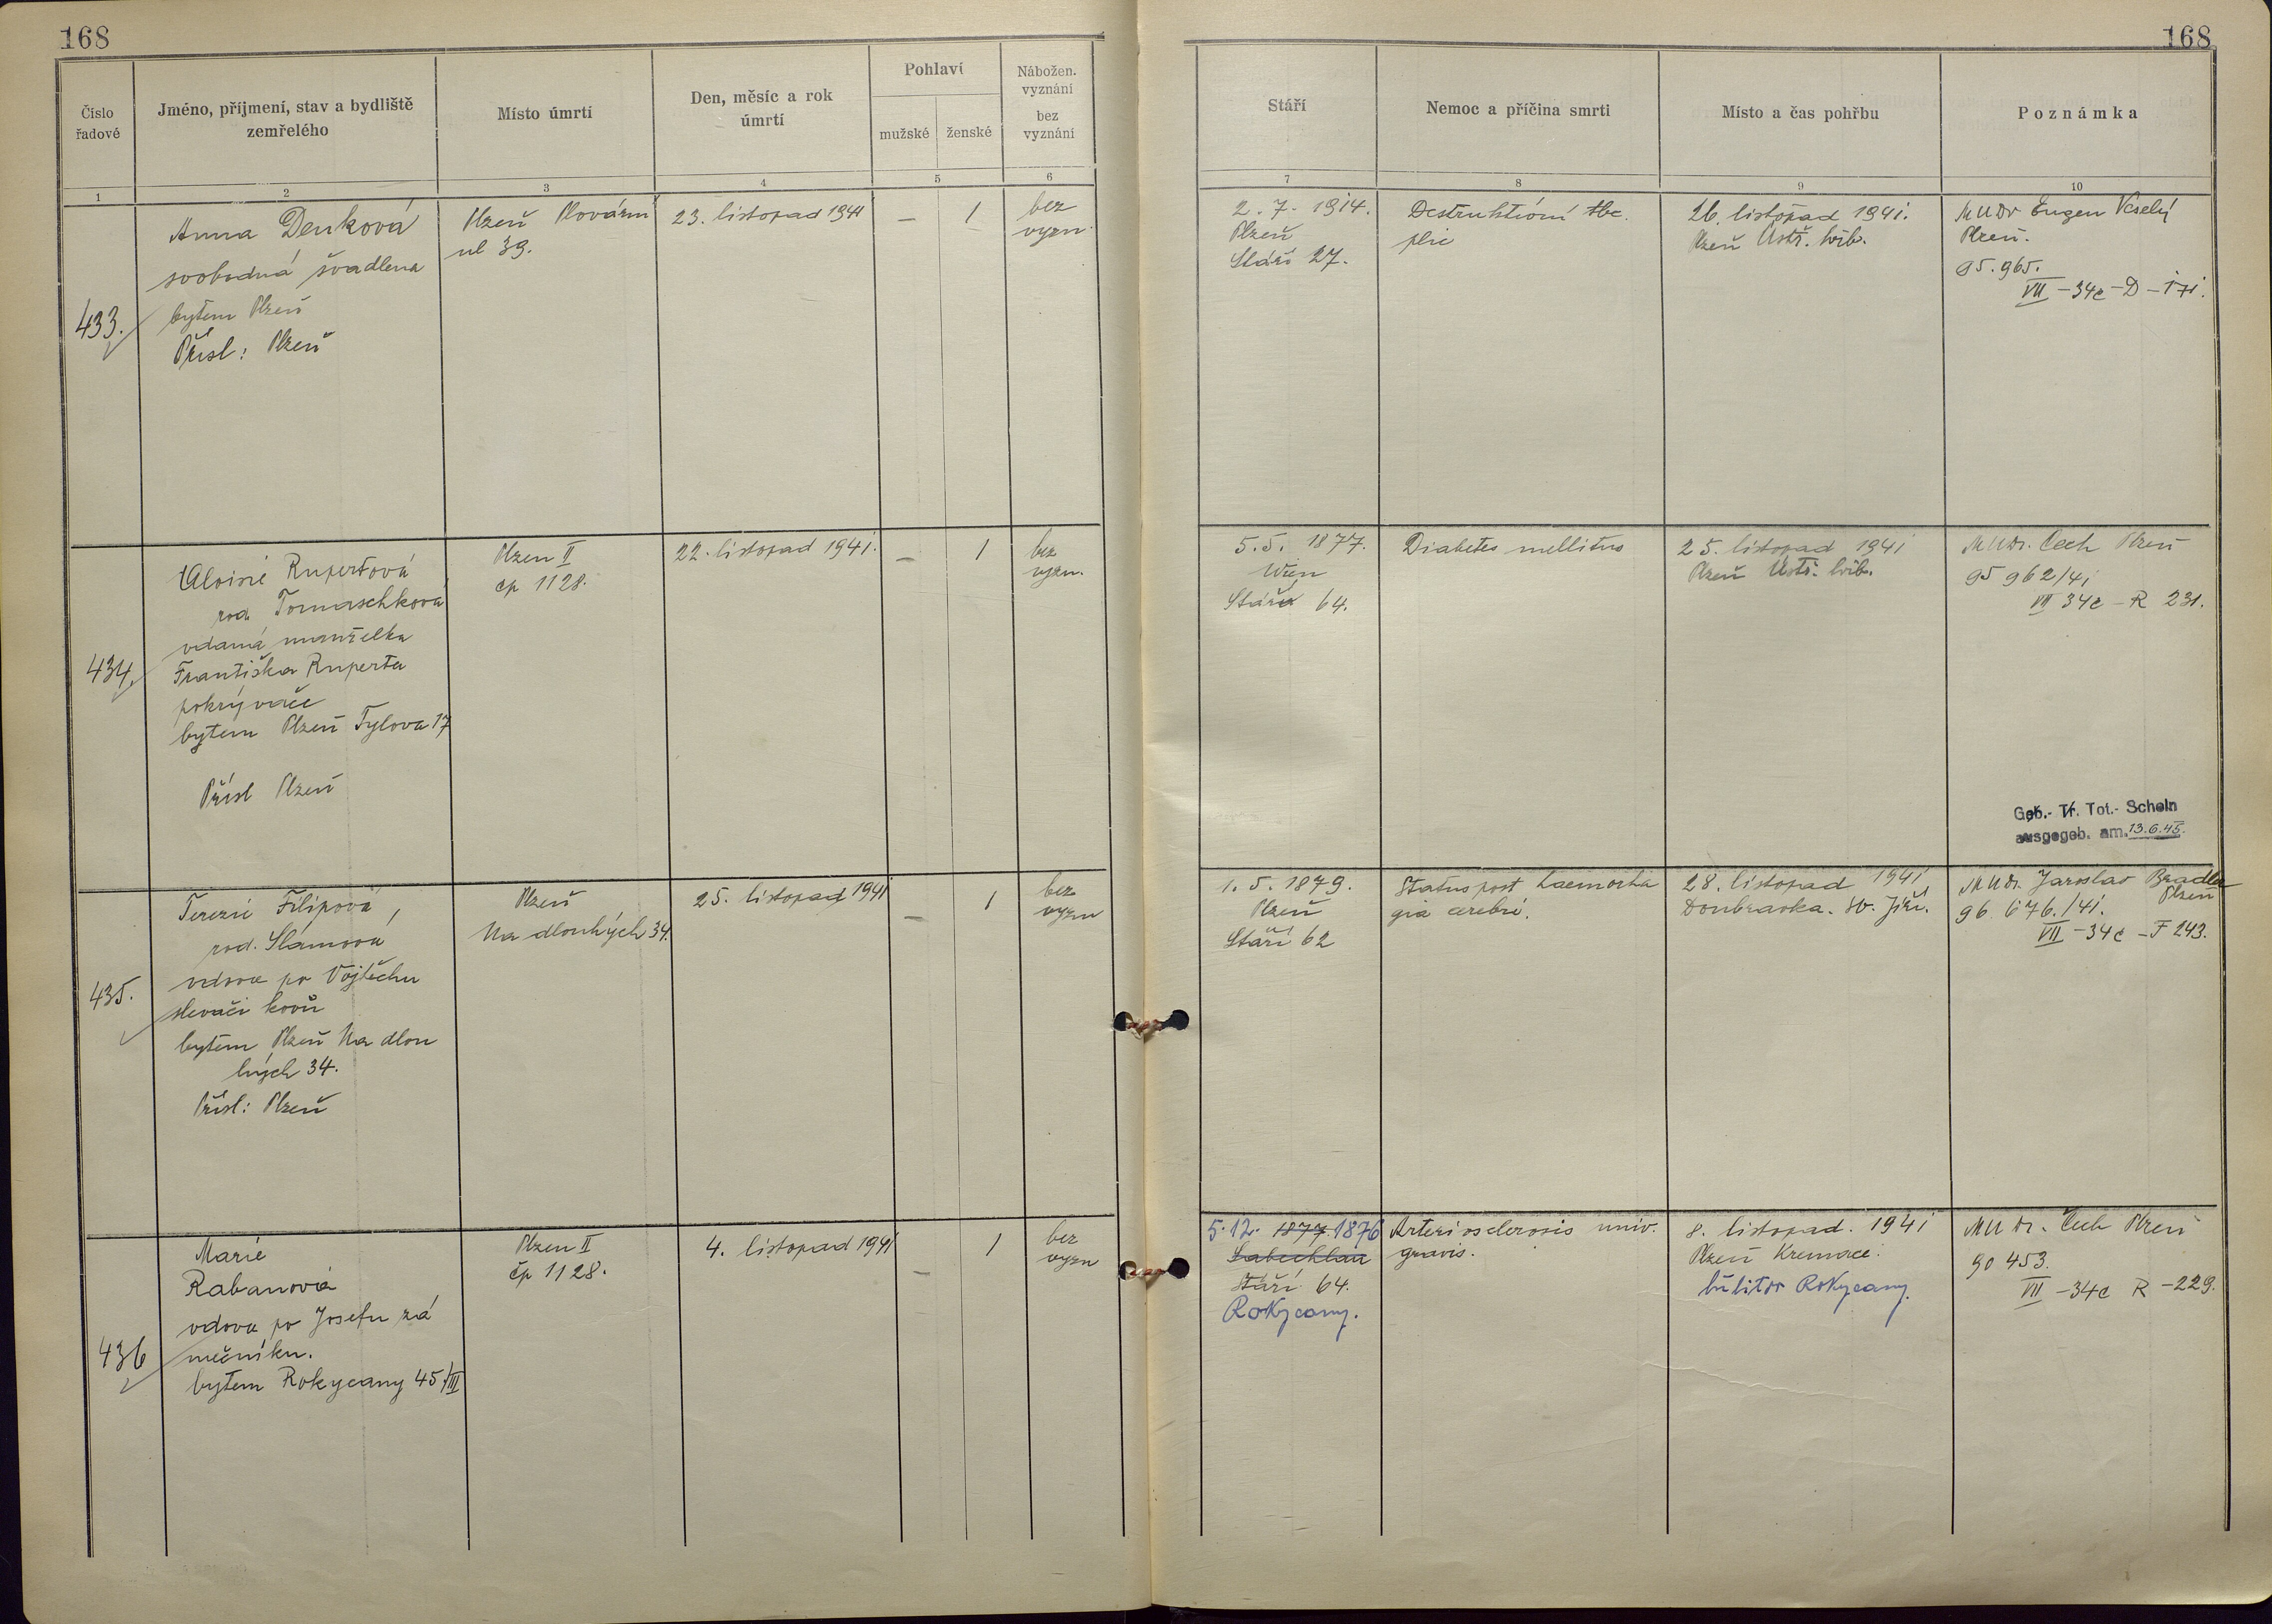 168
168
Číslo řadové
Jméno, příjmení, stav a bydliště zemřelého
Místo úmrtí
Den, měsíc a rok úmrtí
Pohlaví
mužské
ženské
Nábožen. vyznání
bez vyznání
Stáří
Nemoc a příčina smrti
Místo a čas pohřbu
Poznámka
1
2
3
4
5
6
7
8
9
10
433.
Anna Denková
svobodná švadlena
bytem Plzeň
Přísl: Plzeň
Plzeň
ul 39.
23. listopad 1941
—
1
bez
vyzn.
2. 7. 1914.
Plzeň
Stáří 27.
Destruktivní tbc.
plic
26. listopad 1941.
Plzeň Ústř. hřb.
MUDr Eugen Veselý
Plzeň.
95.965.
VII – 34c – D – 171.
434.
Aloisie Rupertová
roz. Tomaschková
vdaná manželka
Františka Ruperta
pokrývače
bytem Plzeň Tylova 17
Přísl Plzeň
Plzen II
čp 1128.
22. listopad 1941.
—
1
bez
vyzn.
5. 5. 1877.
Wien
Stáří 64.
Diabetes mellitus
25. listopad 1941
Plzeň Ústř. hřb.
MUDr. Čech Plzeň
95 962/41
VII 34c – R 231.
Geb.- Tr. Tot.- Schein
ausgegeb. am. 13.6.45.
435.
Terezie Filipová,
roz. Slámová
vdova po Vojtěchu
slevači kovů
bytem Plzeň Na dlou
hých 34.
Přísl: Plzeň
Plzeň
Na dlouhých 34.
25. listopad 1941
—
1
bez
vyzn
1. 5. 1879.
Plzeň
Stáří 62
Status post haemorha
gia cerebri.
28. listopad 1941
Doubravka. Sv. Jiří.
MUDr. Jaroslav Bradle
Plzeň
96. 676./41.
VII – 34c – F 243.
436
Marie
Rabanová
vdova po Josefu zá
mečníku.
bytem Rokycany 45/III
Plzen II
čp 1128.
4. listopad 1941
—
1
bez
vyzn
5. 12. 1877 1876
Stáří 64.
Rokycany.
Arteriosclerosis univ.
gravis.
8. listopad. 1941
Plzeň Kremace.
hřbitov Rokycany.
MUDr. Čech Plzeň
90 453.
VII – 34c R – 229.